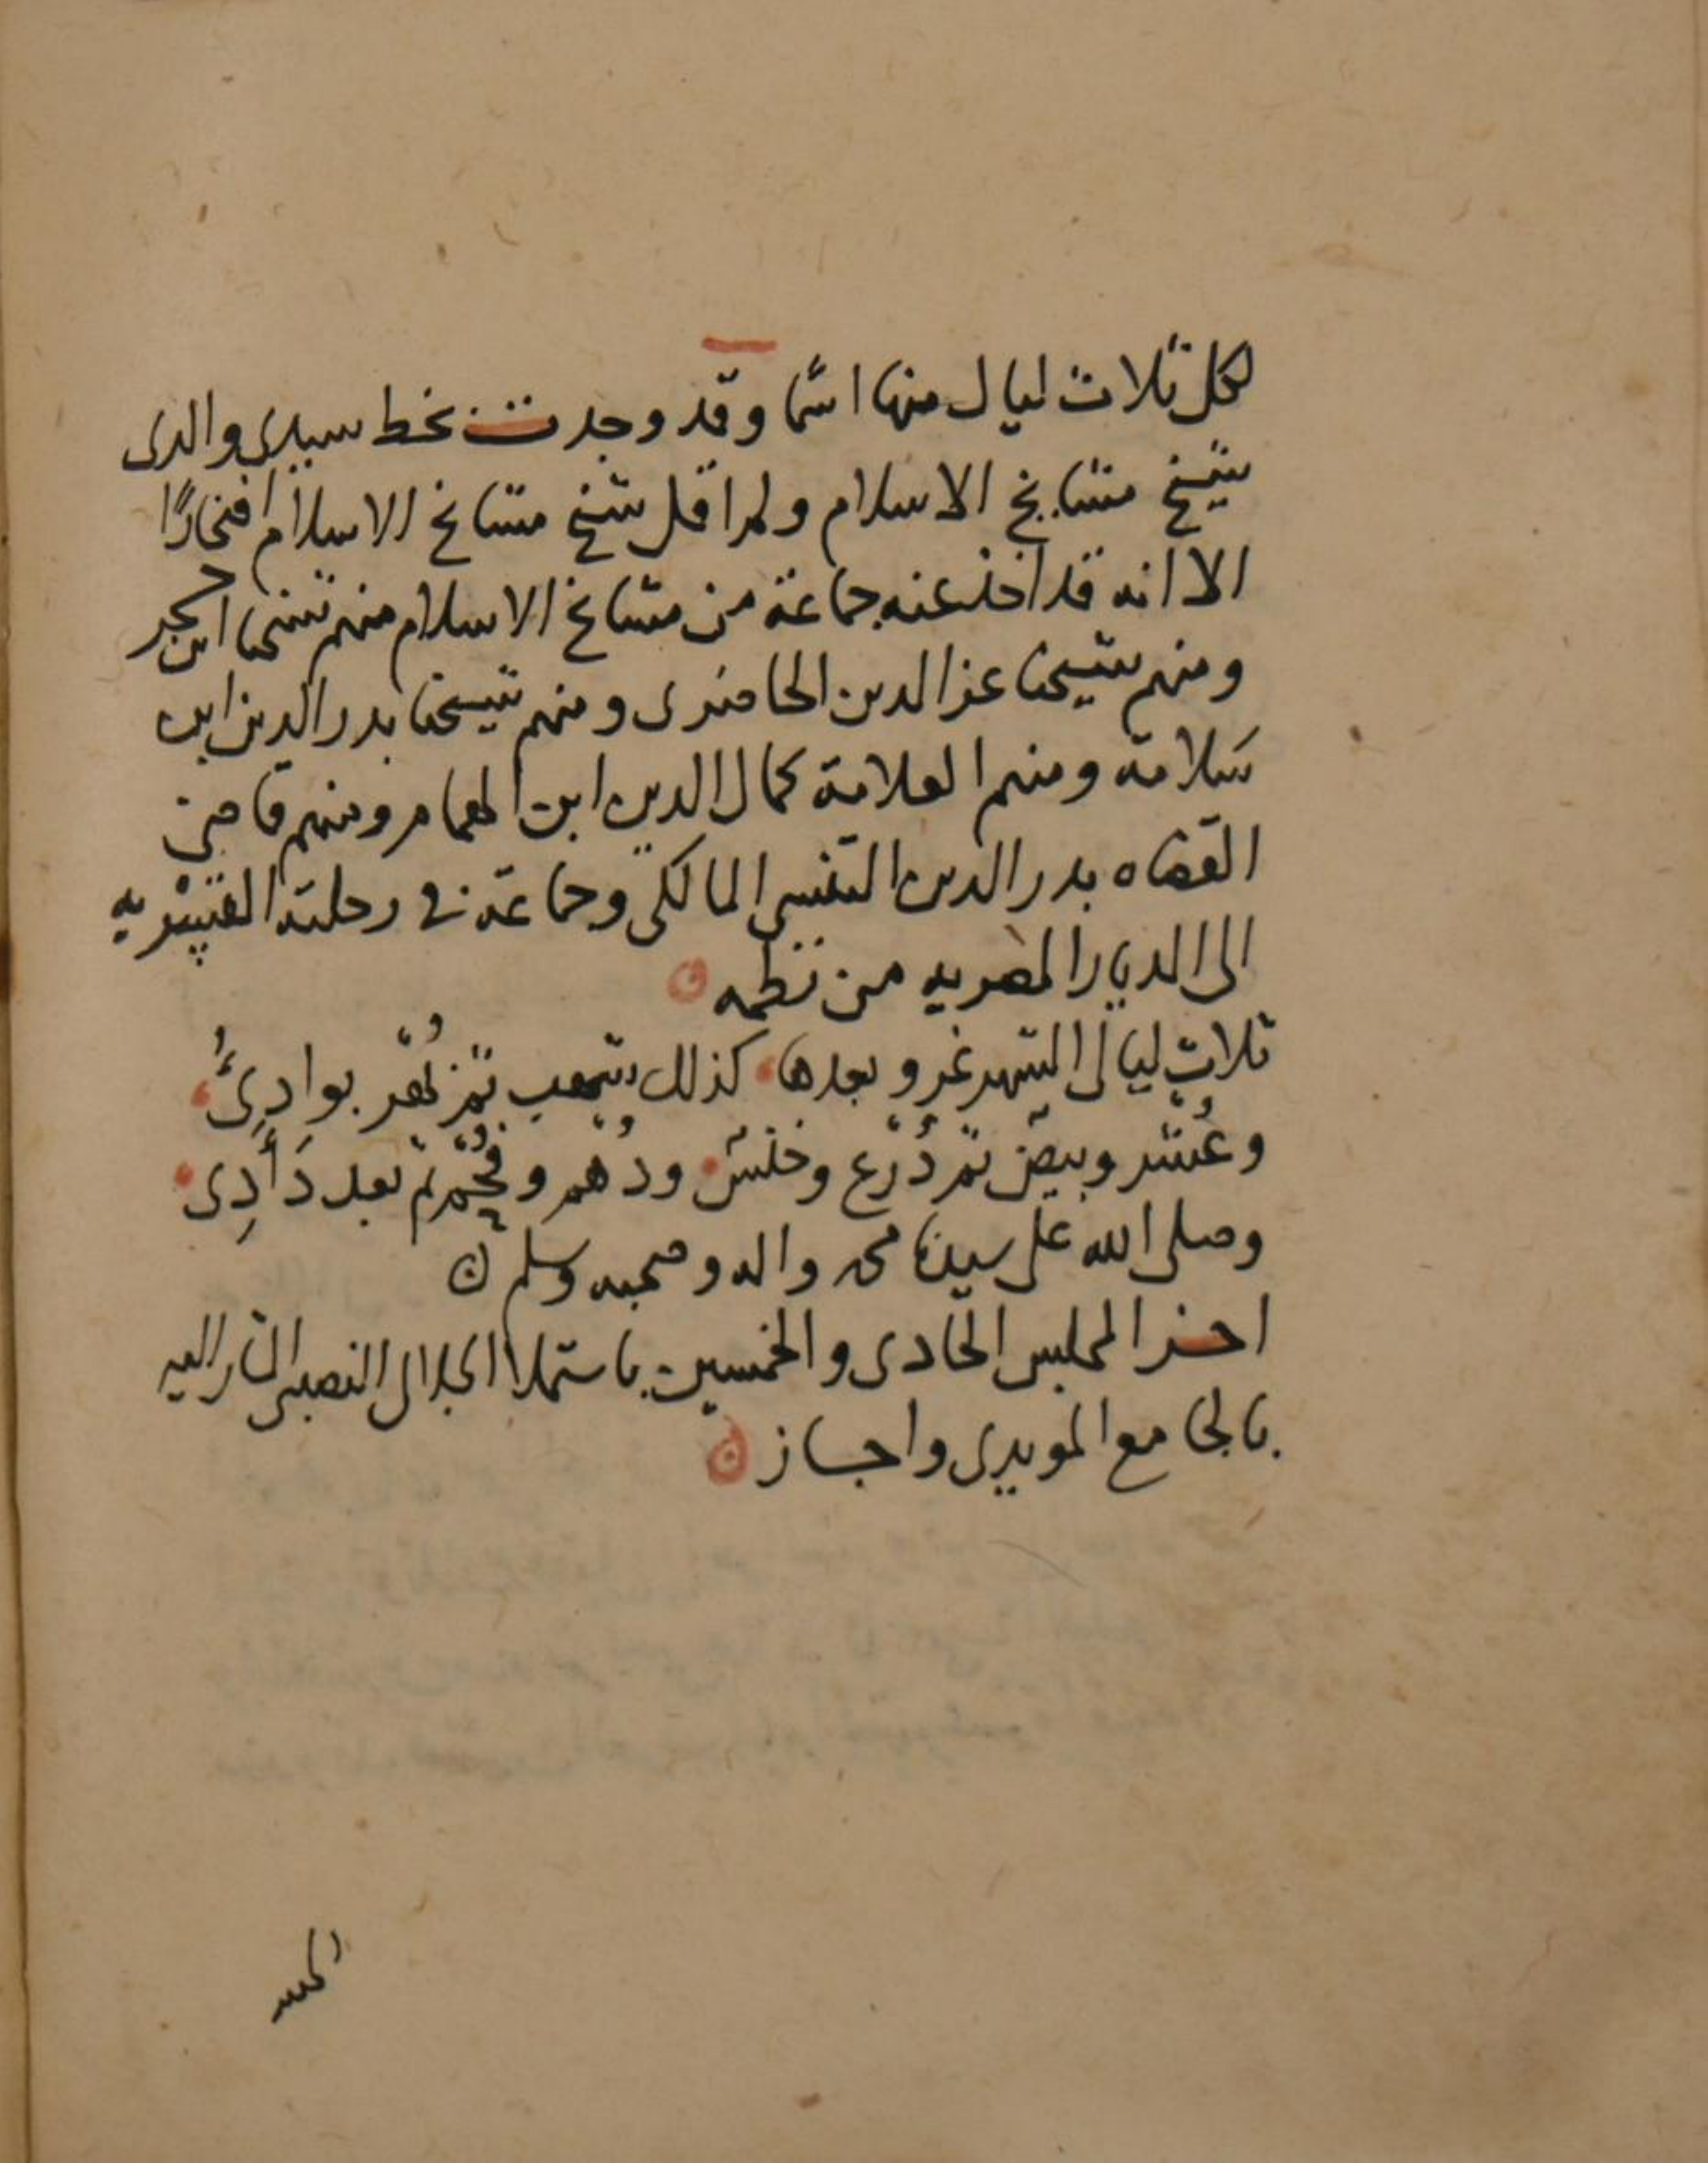 لكل ثلاث ليال منها اسما وقد وجدت بخط سيدي والدى
شيخ مشايخ الاسلام ولم اقل شيخ مشايخ الاسلام افتخارًا
الا انه قد اخذ عنه جماعة من مشايخ الاسلام منهم شيخنا ابن حجر
ومنهم شيخنا عز الدين الحاضرى ومنهم شيخنا بدر الدين ابن
سلامة ومنهم العلامة كمال الدين ابن الهمام ومنهم قاضى
القضاه بدر الدين التنسى المالكى وجماعة فى رحلته القسريه
الى الديار المصريه من نظمه
ثلاث ليالى الشهر غر وبعدها كذلك شهب ثم زهر بوادئ
وعُشر وبيض ثم دُرع وخنس ودُهم وفُحْم ثم بعد دَأَدِى
وصلى الله على سيدنا محمد واله وصحبه وسلم
اخر المجلس الحادى والخمسين باستملا الجلال النصيبى المشار اليه
بالجامع المويدى واجاز